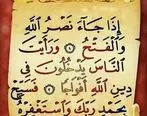 إِذَا جَاءَ نَصْرُ اللَّهِ
وَالْفَتْحُ ۝ وَرَأَيْتَ
النَّاسَ يَدْخُلُونَ فِي
دِينِ اللَّهِ أَفْوَاجًا ۝ فَسَبِّحْ
بِحَمْدِ رَبِّكَ وَاسْتَغْفِرْهُ